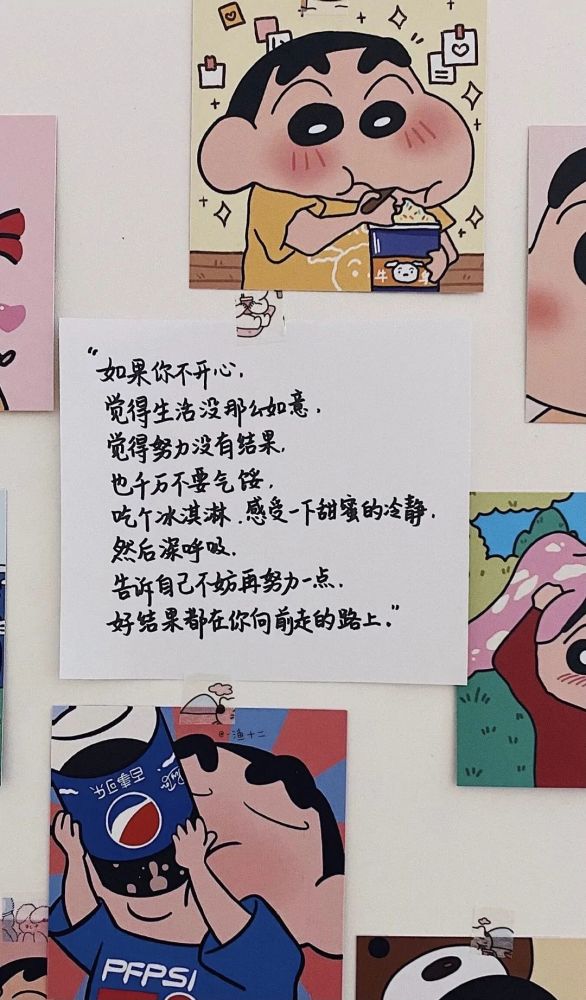 “如果你不开心,
觉得生活没那么如意,
觉得努力没有结果,
也千万不要气馁,
吃个冰淇淋,感受一下甜蜜的冷静,
然后深呼吸,
告诉自己不妨再努力一点,
好结果都在你向前走的路上。”
@一渔十二
百事可乐
PFPSI